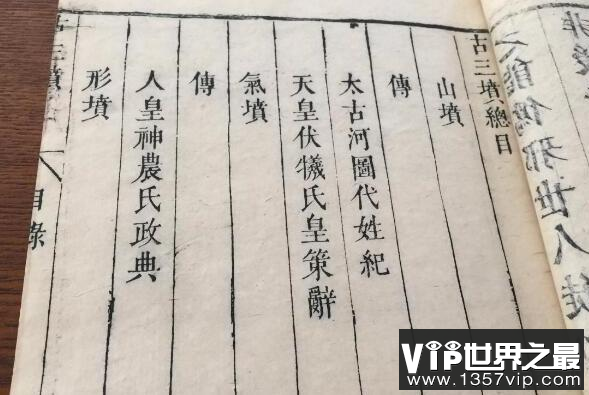 古三墳總目
山墳
傳
太古河圖代姓紀
天皇伏犧氏皇策辭
氣墳
傳
人皇神農氏政典
形墳
古三墳
目錄
VIP世界之最
www.1357vip.com